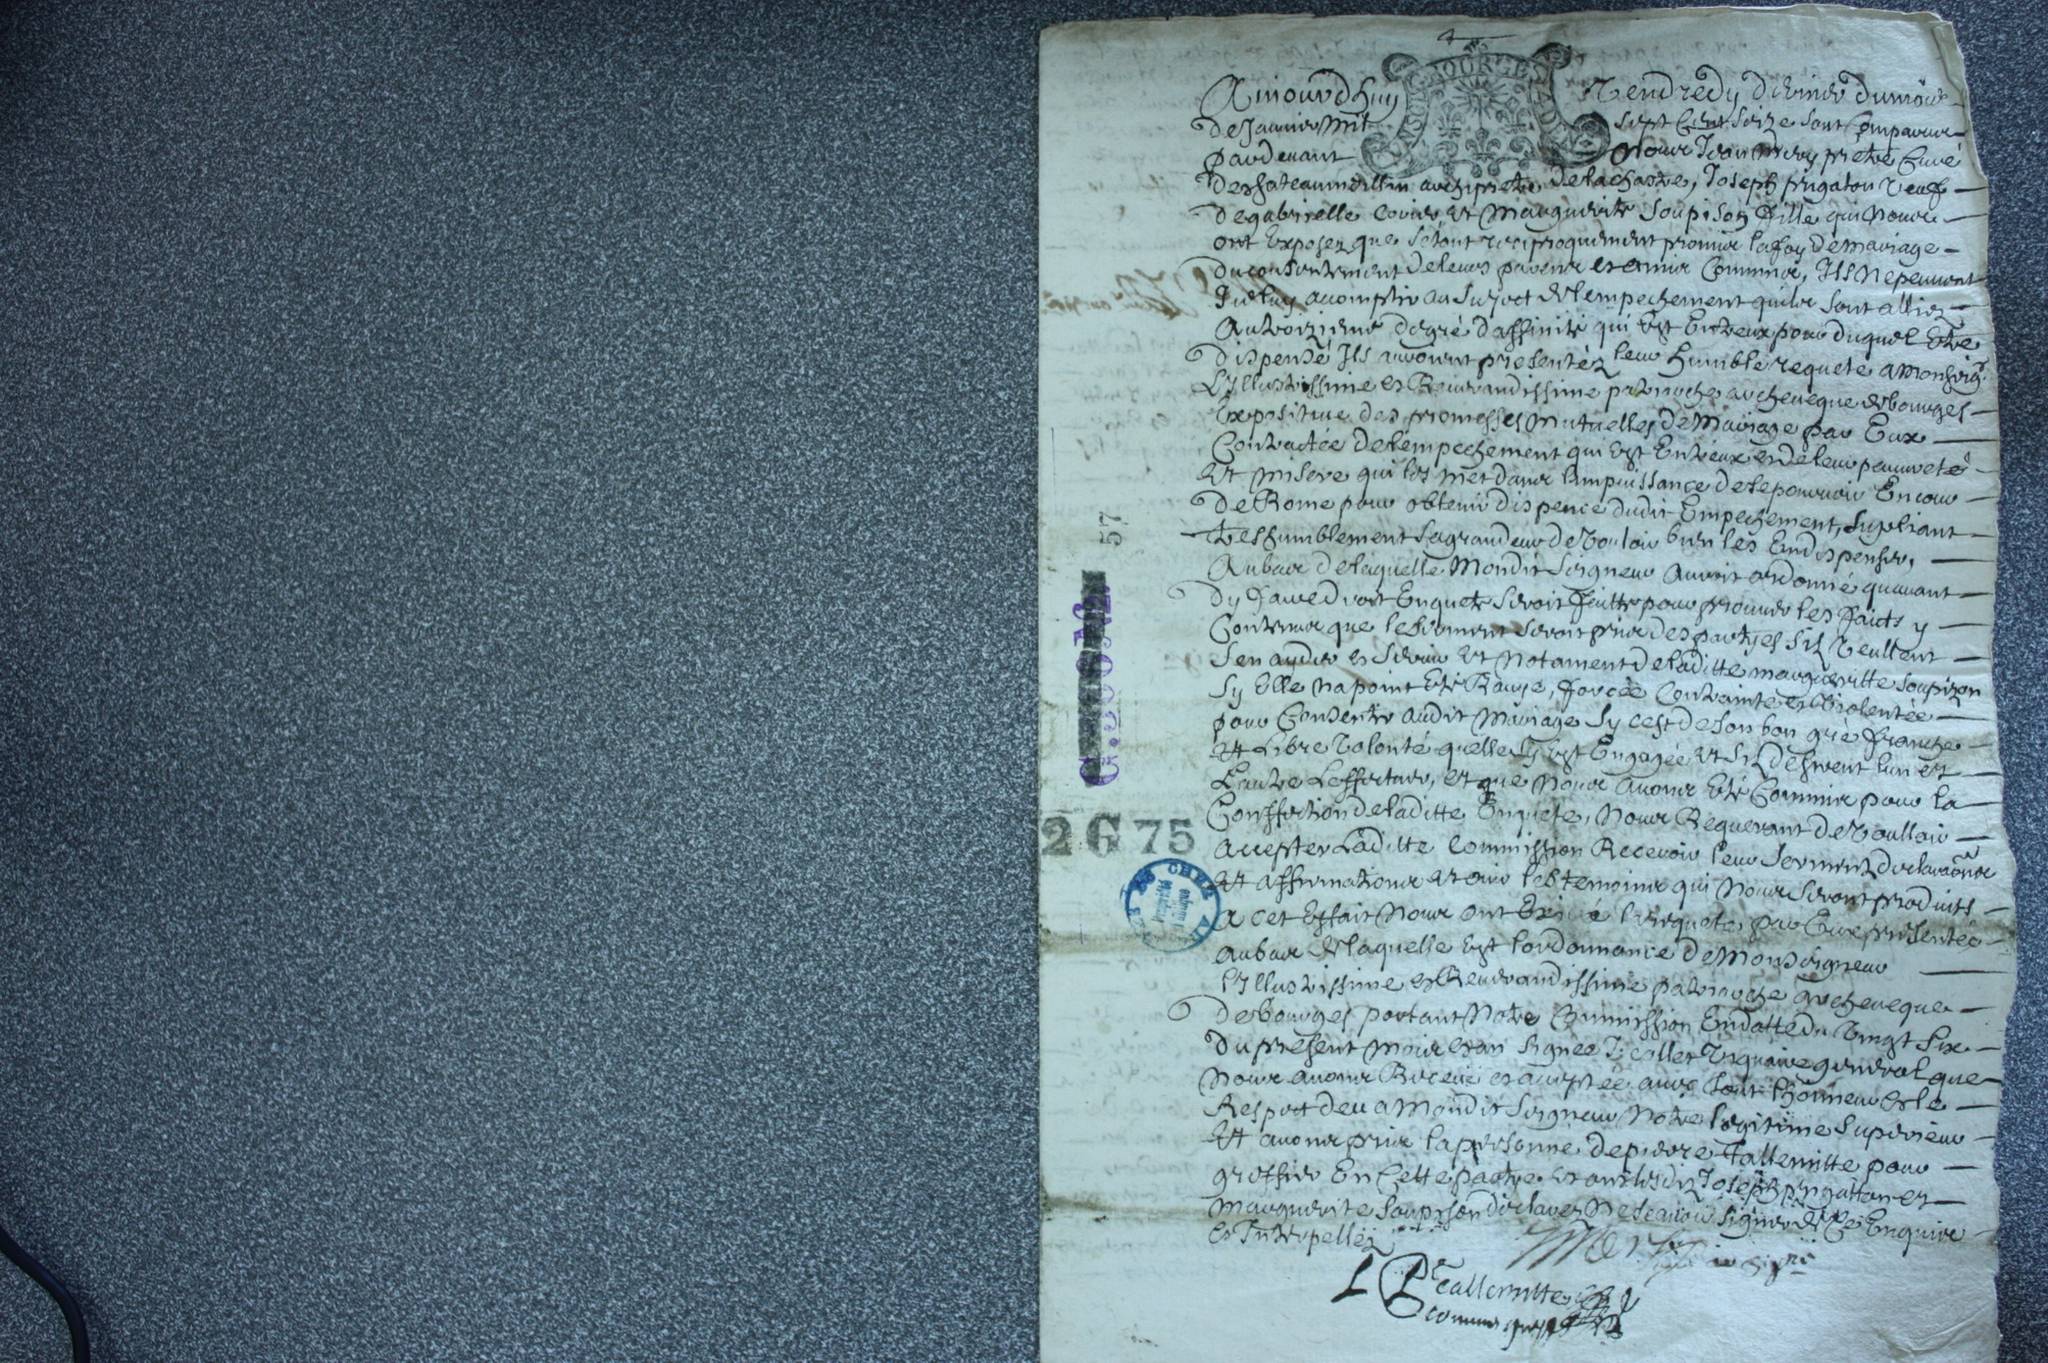 Aujourd'huy Vendredy dernier du mois
de Janvier mil sept Cent Seize sont Comparus
pardevant Nous Jean Mery prêtre Curé
de chateaumeillin archiprêtre de la chastre, Joseph prigaton veuf
de gabrielle Corier et Marguerite Soupison fille qui Nous
ont Exposez que s'etant reciproquement promis la foy de mariage
du consentement de leurs parens et amis Communs, Ils ne peuvent
Icelluy accomplir au sujet de lempechement quils sont alliez
au troizieme degré daffinité qui Est Entreux pour duquel Etre
dispensé Ils auroient presentéz leur humble requete a Monseigr
L'Illustrissime et Reverandissime patriarche archeveque de bourges
Expositive des promesses Mutuelles de Mariage par Eux
Contractée de lempechement qui Est Entreux et de leur pauvreté
Et Misere qui les met dans limpuissance de se pourvoir En cour
de Rome pour obtenir dispence dudit Empechement, Supliant
tres humblement Sa grandeur de Vouloir bien les En dispenser,
Au bas de laquelle Mondit Seigneur auroit ordonné quavant
dy faire droit Enquete seroit faitte pour prouver les faits y
Contenus que le serment seroit pris des partyes silz veullent
sen ayder et servir Et Notament de laditte margueritte Soupizon
sy Elle na point Eté Ravie, forcée Contrainte et Violentée
pour Consentir audit Mariage sy cest de son bon gré franche
Et Libre Volonté quelle sy est Engagée Et silz desirent lun et
L'autre Leffectuer, et que Nous avons Eté Commis pour la
Conffection de laditte Enquete, Nous Requerant de Voulloir
accepter Laditte Commission Recevoir leur serment declara[ti]ons
Et affirmations et ouir les temoins qui Nous seront produits
a cet Effait Nous ont Exibé la requete par Eux presentée
au bas de laquelle Est lordonnance de Monseigneur
l'Illustrissime et Reverandissime patriarche archeveque
de bourges portant Notre Commission En datte du Vingt six
du present mois et an signée J: collet Viquaire general que
Nous avons Receüe et acceptée avec tout lhonneur et le
Respect deu a Mondit Seigneur Notre legitime Superieur
Et avons pris la personne de pierre Tallemitte pour
greffier En Cette partye. et ont lesdiz Joseph prigatton et
Marguerite Soupison declarez Ne scavoir signer de Ce Enquire
et Interpellez
Mery
Tallemitte
commis
57
2 G 75